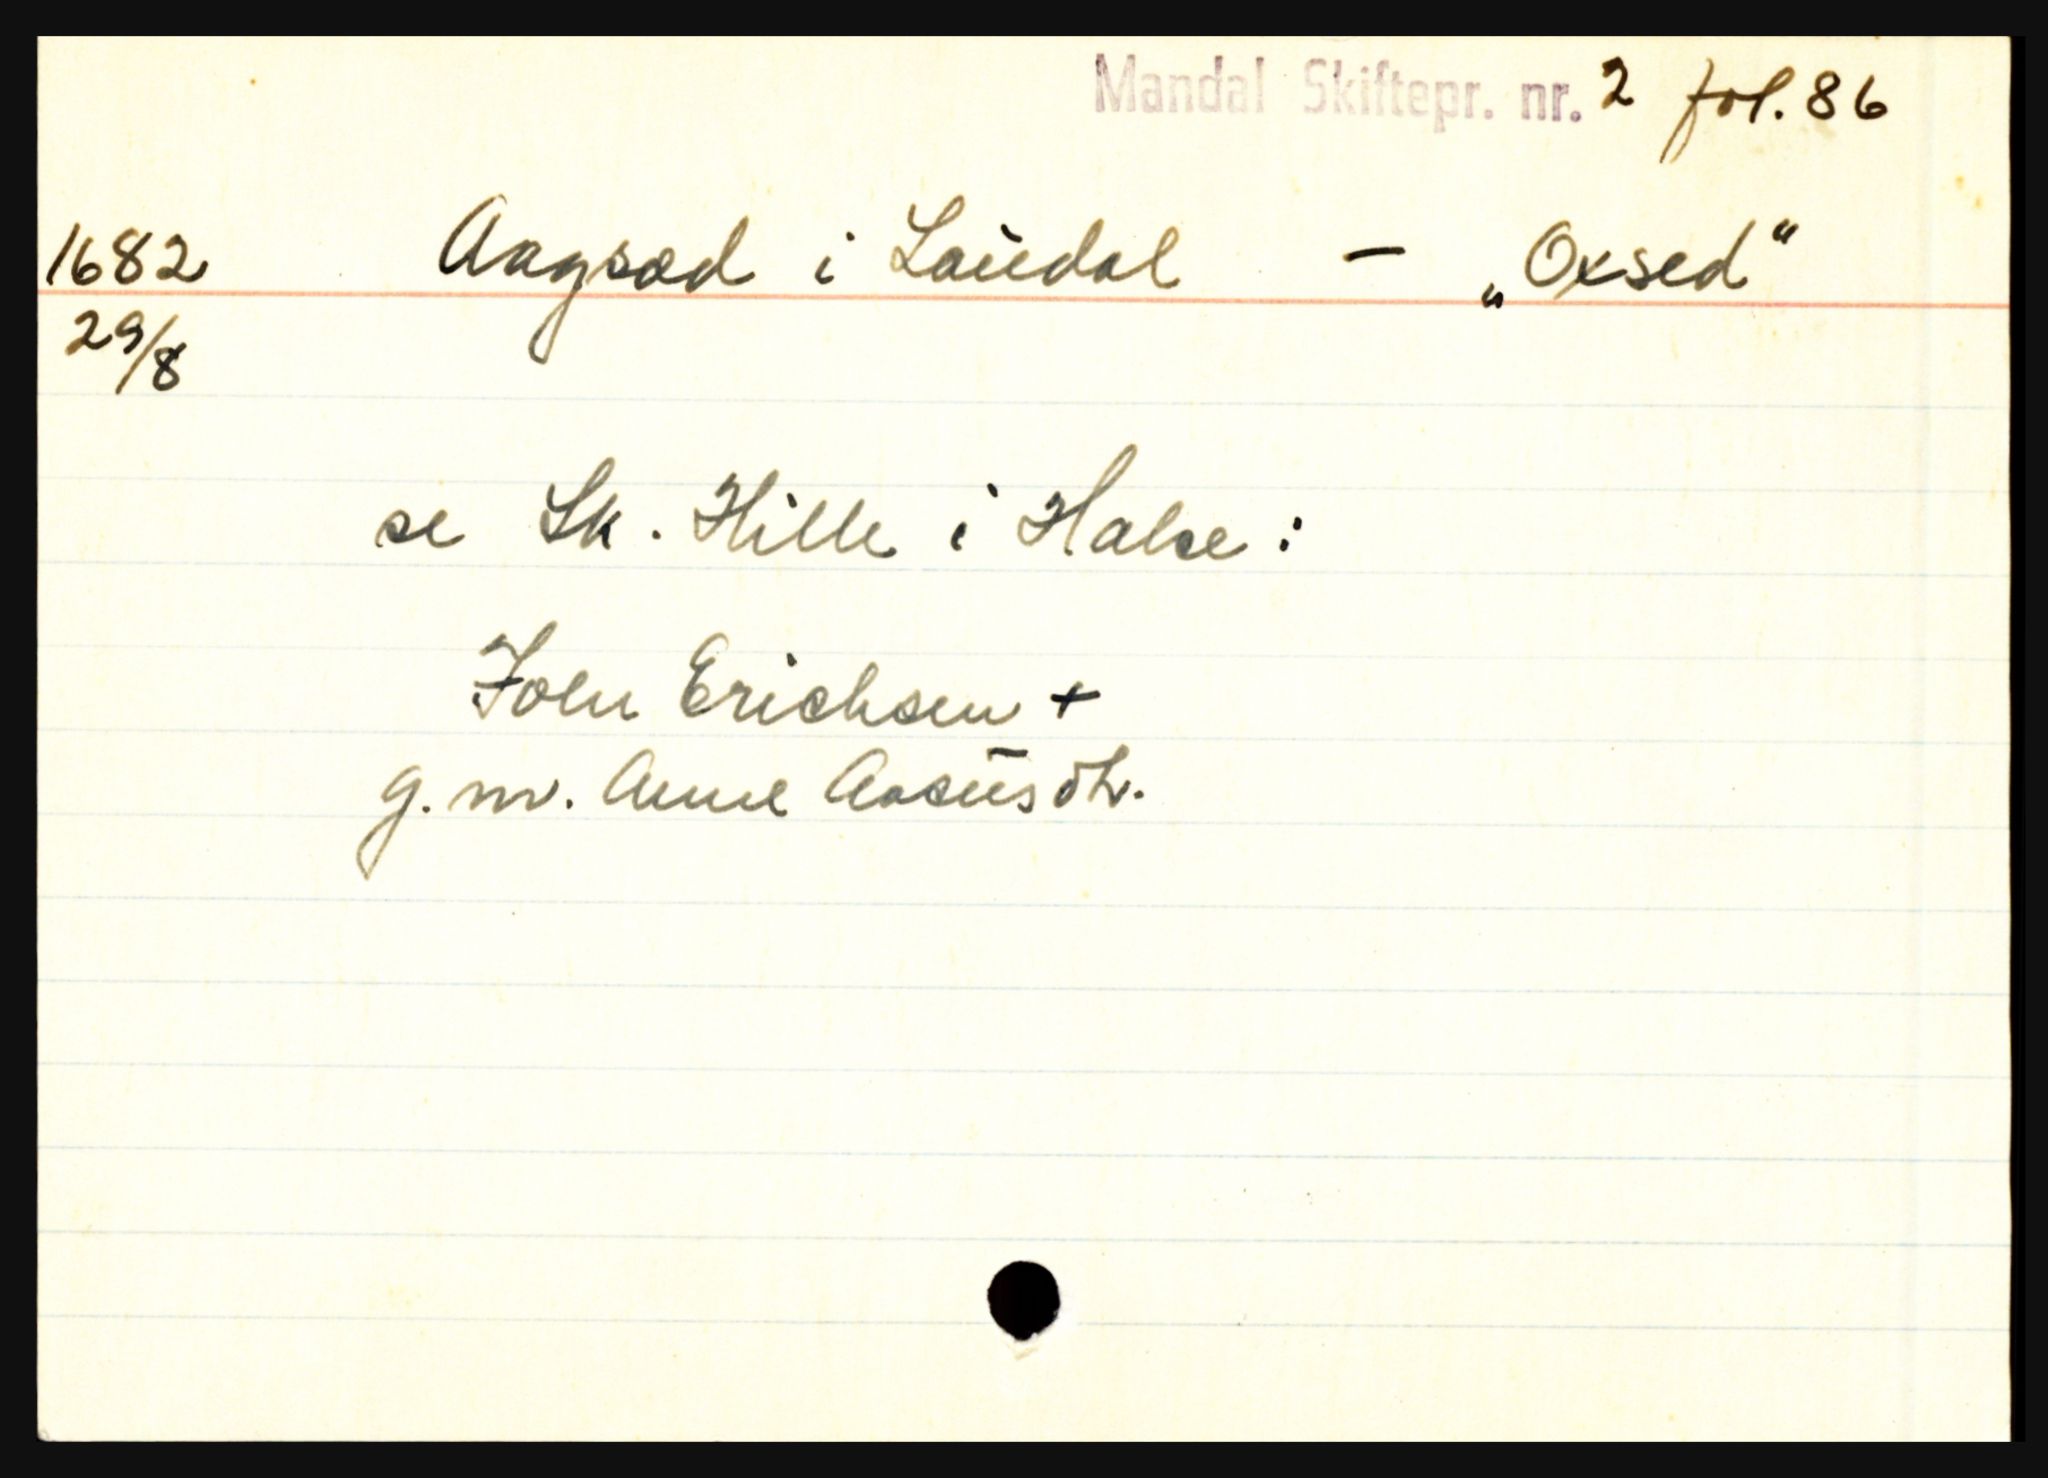 Mandal Skiftepr. nr. 2 fol. 86
1682 Aagsæd i Laudal - „Oxsed“
29/8
se Sk. Hille i Halse:
John Erichsen +
g. m. Anne Aasūsdtr.